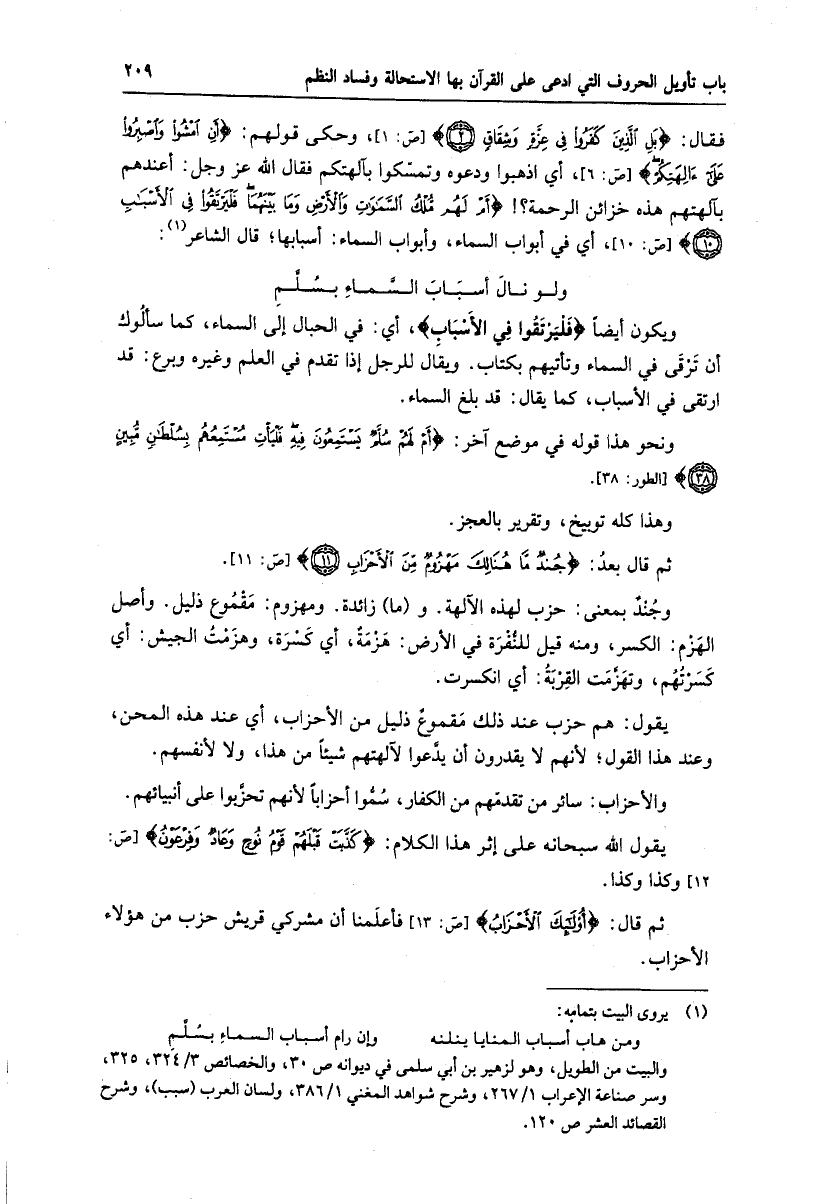 باب تأويل الحروف التي ادعى على القرآن بها الاستحالة وفساد النظم ٢٠٩
فقال: ﴿بَلِ ٱلَّذِينَ كَفَرُوا۟ فِى عِزَّةٍ وَشِقَاقٍ ۝٢﴾ [صَ: ١]، وحكى قولهم: ﴿أَنِ ٱمْشُوا۟ وَٱصْبِرُوا۟
عَلَىٰٓ ءَالِهَتِكُمْ ۖ﴾ [صَ: ٦]، أي اذهبوا ودعوه وتمسّكوا بآلهتكم فقال الله عز وجل: أعندهم
بآلهتهم هذه خزائن الرحمة؟! ﴿أَمْ لَهُم مُّلْكُ ٱلسَّمَٰوَٰتِ وَٱلْأَرْضِ وَمَا بَيْنَهُمَا ۖ فَلْيَرْتَقُوا۟ فِى ٱلْأَسْبَٰبِ
۝١٠﴾ [صَ: ١٠]، أي في أبواب السماء، وأبواب السماء: أسبابها؛ قال الشاعر(١):
ولو نالَ أسبَابَ السَّماءِ بسُلَّمِ
ويكون أيضاً ﴿فَلْيَرْتَقُوا فِي الأَسْبَابِ﴾، أي: في الحبال إلى السماء، كما سألُوك
أن تَرْقَى في السماء وتأتيهم بكتاب. ويقال للرجل إذا تقدم في العلم وغيره وبرع: قد
ارتقى في الأسباب، كما يقال: قد بلغ السماء.
ونحو هذا قوله في موضع آخر: ﴿أَمْ لَهُمْ سُلَّمٌ يَسْتَمِعُونَ فِيهِ ۖ فَلْيَأْتِ مُسْتَمِعُهُم بِسُلْطَٰنٍ مُّبِينٍ
۝٣٨﴾ [الطور: ٣٨].
وهذا كله توبيخ، وتقرير بالعجز.
ثم قال بعدُ: ﴿جُندٌ مَّا هُنَالِكَ مَهْزُومٌ مِّنَ ٱلْأَحْزَابِ ۝١١﴾ [صَ: ١١].
وجُنْدٌ بمعنى: حزب لهذه الآلهة. و (ما) زائدة. ومهزوم: مَقْمُوع ذليل. وأصل
الهَزْم: الكسر، ومنه قيل للنُّقْرَة في الأرض: هَزْمَةٌ، أي كَسْرَة، وهزَمْتُ الجيش: أي
كَسَرْتُهُم، وتهَزَّمَت القِرْبَةُ: أي انكسرت.
يقول: هم حزب عند ذلك مَقموعٌ ذليل من الأحزاب، أي عند هذه المحن،
وعند هذا القول؛ لأنهم لا يقدرون أن يدَّعوا لآلهتهم شيئاً من هذا، ولا لأنفسهم.
والأحزاب: سائر من تقدمّهم من الكفار، سُمُّوا أحزاباً لأنهم تحزَّبوا على أنبيائهم.
يقول الله سبحانه على إثر هذا الكلام: ﴿كَذَّبَتْ قَبْلَهُمْ قَوْمُ نُوحٍ وَعَادٌ وَفِرْعَوْنُ﴾ [صَ:
١٢] وكذا وكذا.
ثم قال: ﴿أُو۟لَٰٓئِكَ ٱلْأَحْزَابُ﴾ [صَ: ١٣] فأعلَمنا أن مشركي قريش حزب من هؤلاء
الأحزاب.
(١) يروى البيت بتمامِه:
ومن هاب أسباب المنايا ينلنه وإن رام أسباب السماءِ بسُلَّمِ
والبيت من الطويل، وهو لزهير بن أبي سلمى في ديوانه ص ٣٠، والخصائص ٣/ ٣٢٤، ٣٢٥،
وسر صناعة الإعراب ١/ ٢٦٧، وشرح شواهد المغني ١/ ٣٨٦، ولسان العرب (سبب)، وشرح
القصائد العشر ص ١٢٠.